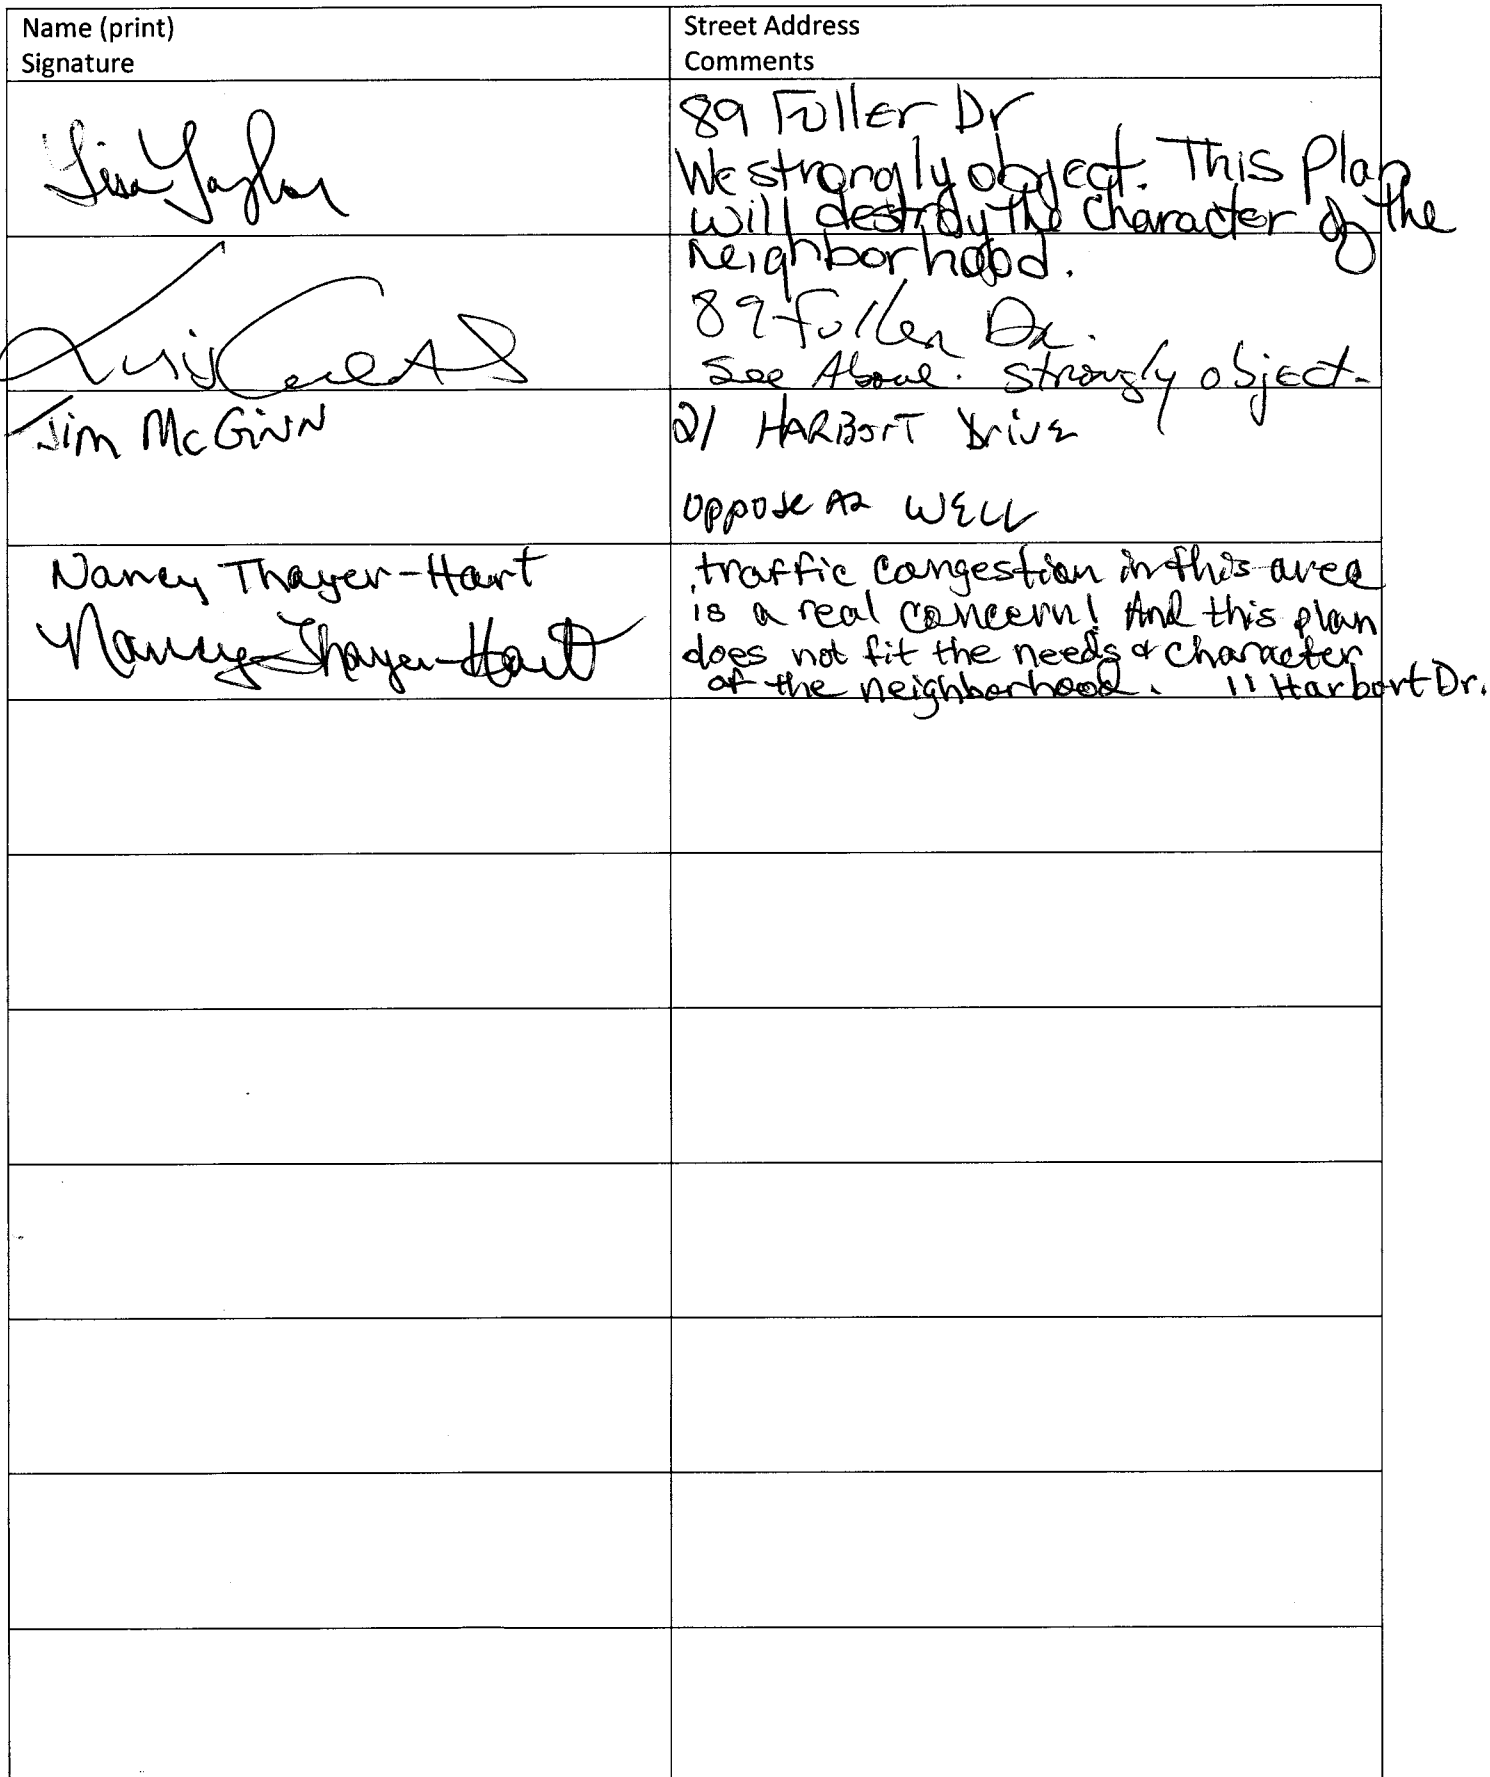 Name (print)
Signature
Street Address
Comments
Lisa Taylor
89 Fuller Dr
We strongly object. This Plan
will destroy the character of the
neighborhood.
Luis
89 Fuller Dr.
See Above. Strongly object.
Jim McGinn
21 HARBORT Drive
Oppose As WELL
Nancy Thayer-Hart
Nancy Thayer-Hart
traffic congestion in this area
is a real concern! And this plan
does not fit the needs & character
of the neighborhood. 11 Harbort Dr.